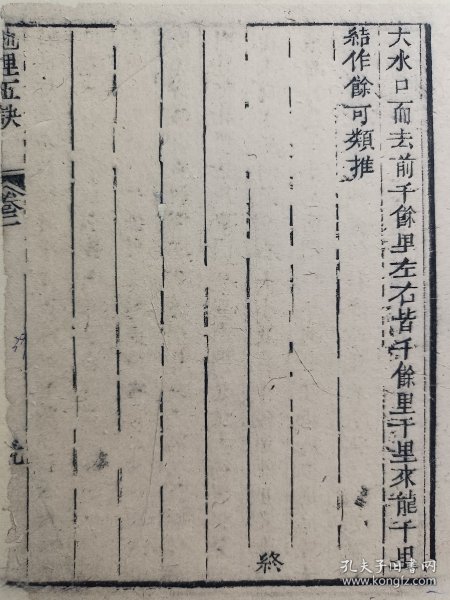 大水口而去前千餘里左右皆千餘里千里來龍千里
結作餘可類推
終
地理五訣
卷二
孔夫子旧书网
www.kongfz.com